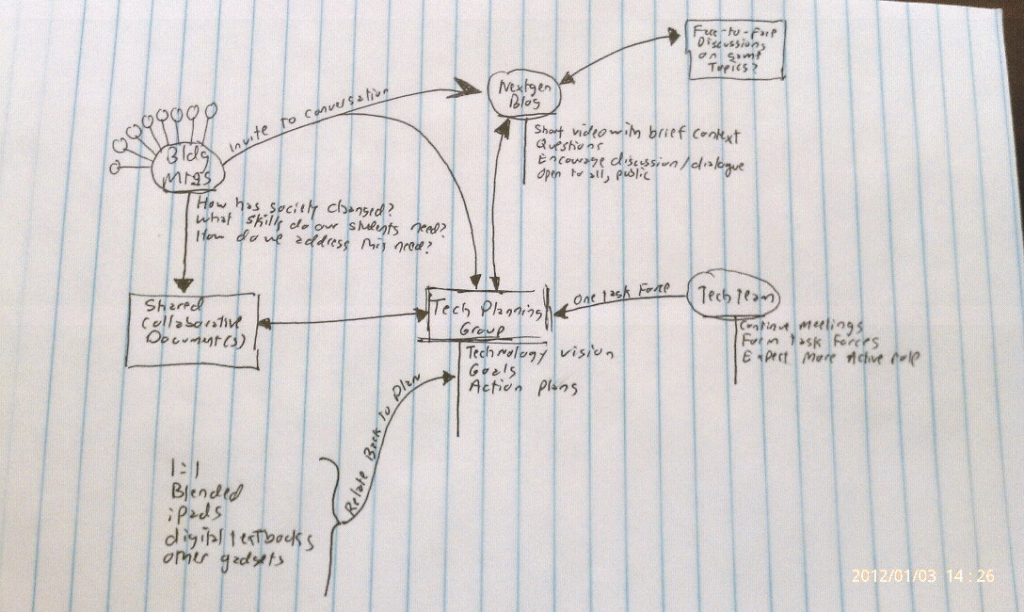 Face-to-Face
Discussions
on some
Topics?
Nextgen
Blog
Invite to Conversation
Bldg
Mtgs
Short video with brief context
Questions
Encourage discussion/dialogue
Open to all, public
How has society changed?
What skills do our students need?
How do we address this need?
Shared
Collaborative
Document(s)
Tech Planning
Group
One Task Force
Tech Team
Continue Meetings
Form Task Forces
Expect More Active role
Technology vision
Goals
Action Plans
Relate Back to Plan
1:1
Blended
iPads
digital textbooks
other gadgets
2012/01/03 14:26